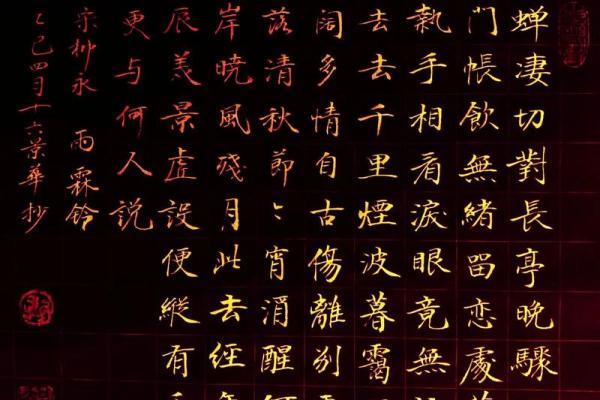 蝉淒切對長亭晚驟
門帳飲無緒留恋處
執手相看淚眼竟無
去去千里煙波暮靄
闊多情自古傷離别
落清秋節今宵酒醒
岸曉風殘月此去經
辰美景虚設便縱有
更与何人説
宋柳永 雨霖鈴
乙巳四月十六景華抄